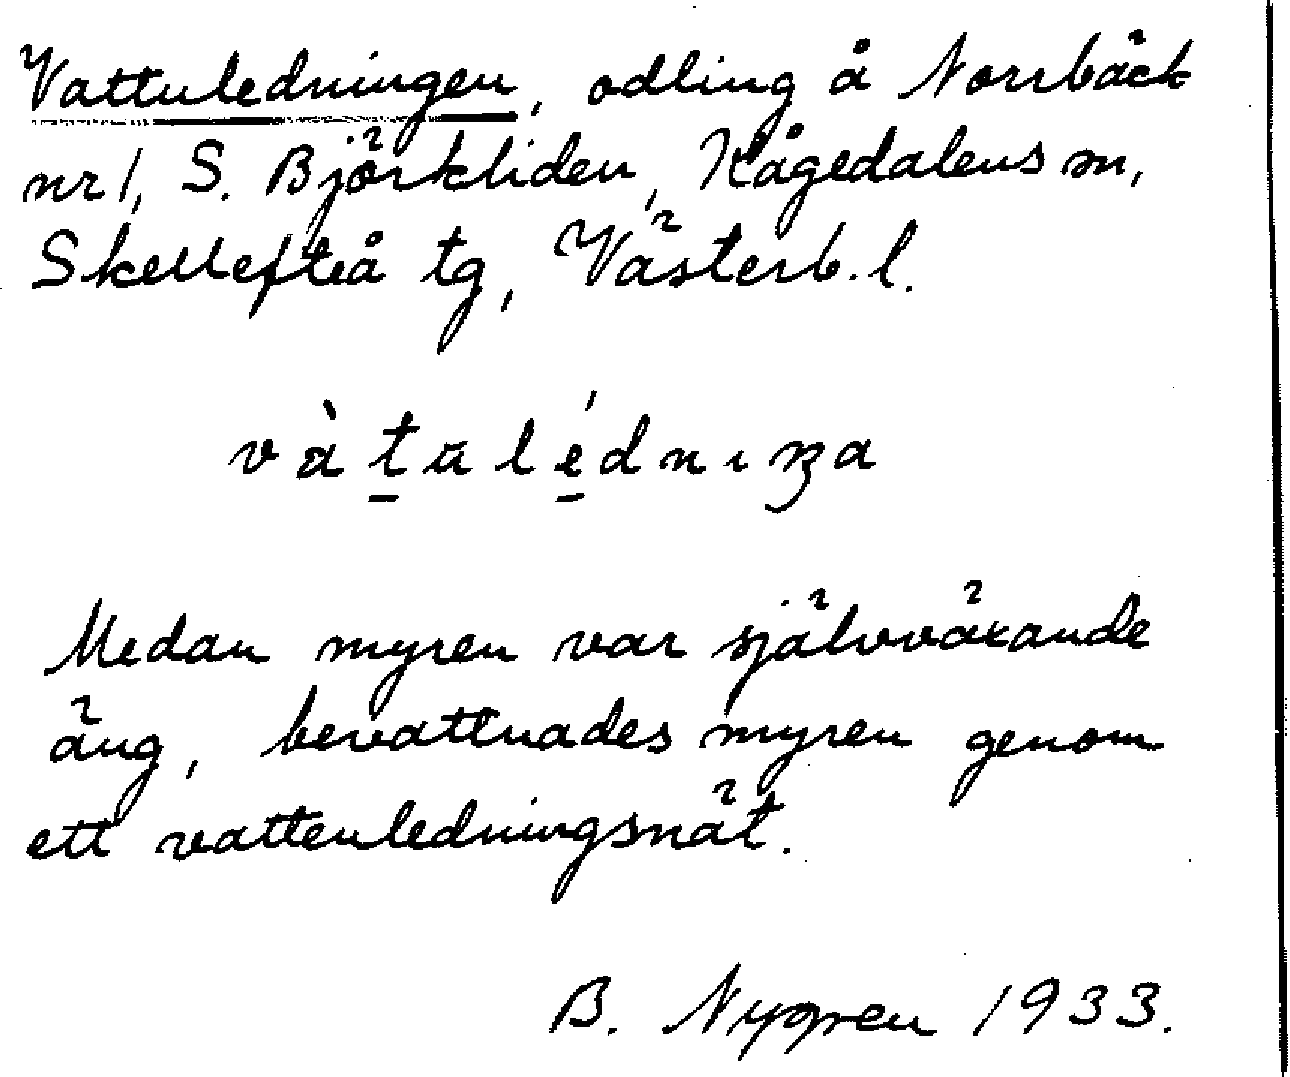 Vattuledningen, odling å Norrbäck
nr 1, S. Björkliden, Kågedalens sn,
Skellefteå tg, Västerb. l.
vàt̠ulé̠dnıŋa
Medan myren var självväxande
äng, bevattnades myren genom
ett vattenledningsnät.
B. Nygren 1933.